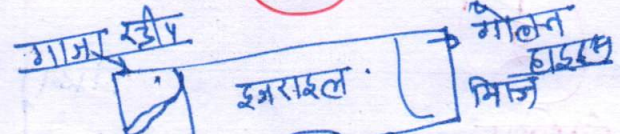 गाजा स्ट्रीप
इजराइल
गोलन
हाइट्स